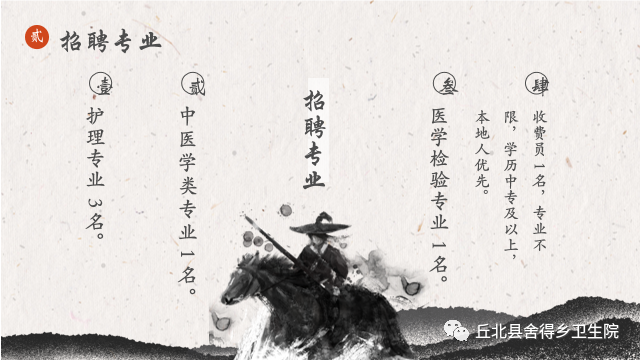 贰 招聘专业
壹
护理专业3名。
贰
中医学类专业1名。
招聘专业
叁
医学检验专业1名。
肆
收费员1名，专业不
限，学历中专及以上，
本地人优先。
丘北县舍得乡卫生院